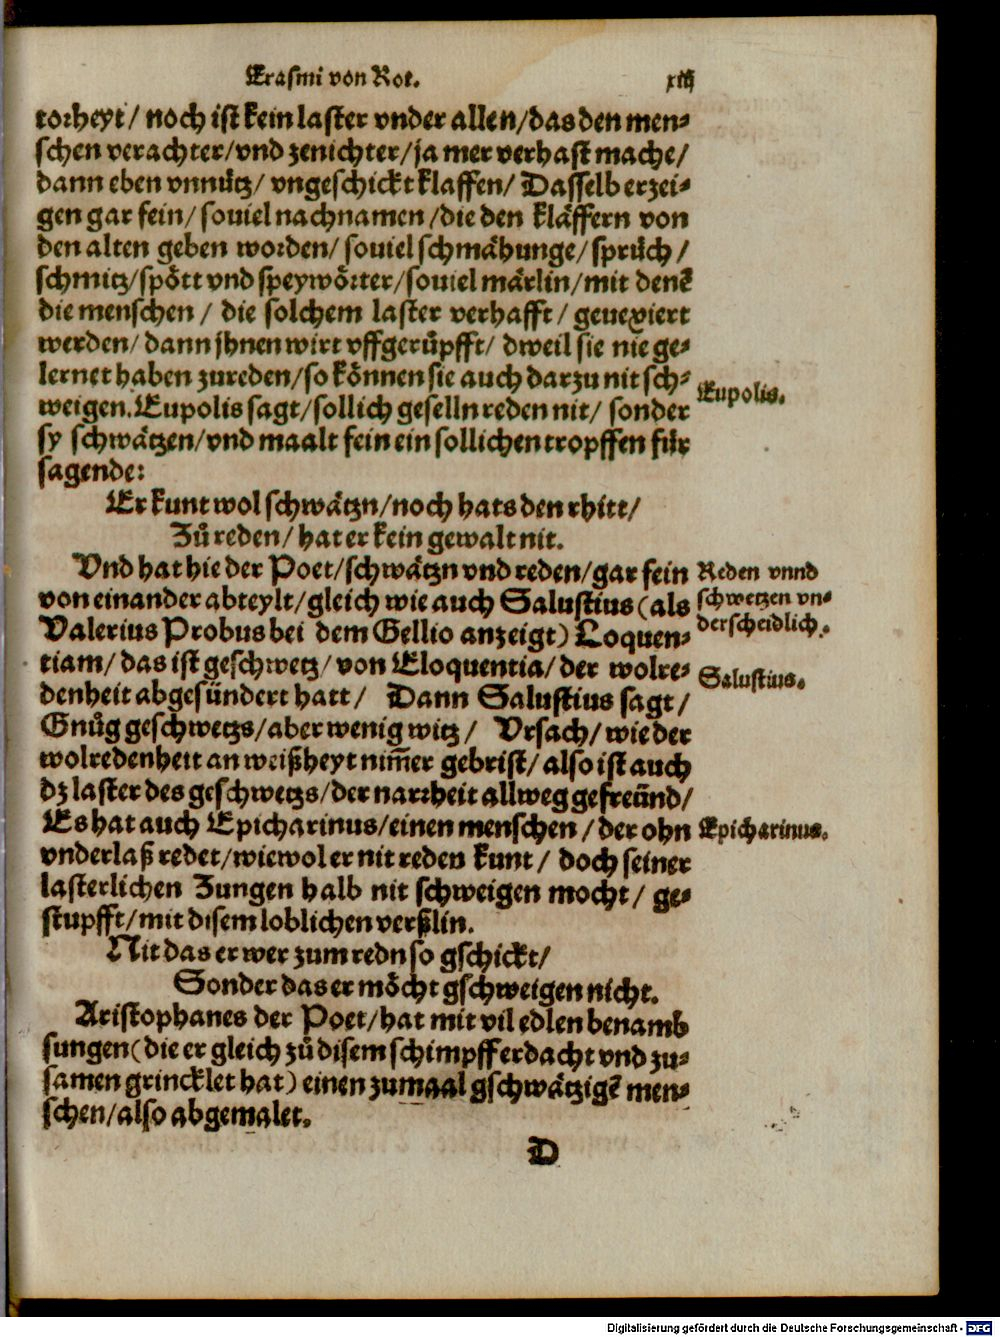 Erasmi von Rot. xiij
torheyt / noch ist kein laster vnder allen/das den men-
schen verachter/vnd zenichter/ja mer verhast mache/
dann eben vnnütz/ vngeschickt klaffen/ Dasselb erzei-
gen gar fein/ souiel nachnamen /die den kläffern von
den alten geben worden/ souiel schmähunge/ sprüch /
schmitz/spött vnd speywörter/souiel märlin/mit denē
die menschen / die solchem laster verhafft / geuexiert
werden/ dann jhnen wirt vffgerüpfft/ dweil sie nie ge-
lernet haben zureden/so können sie auch darzu nit sch-
weigen. Eupolis sagt/sollich geselln reden nit/ sonder
Eupolis.
sy schwätzen/vnd maalt fein ein sollichen tropffen für
sagende:
Er kunt wol schwätzn/noch hats den rhitt/
Zů reden/ hat er kein gewalt nit.
Vnd hat hie der Poet/schwätzn vnd reden/gar fein
Reden vnnd
von einander abteylt/gleich wie auch Salustius (als
schwetzen vn-
Valerius Probus bei dem Gellio anzeigt) Loquen-
derscheidlich.
tiam/ das ist geschwetz/ von Eloquentia/ der wolre-
Salustius.
denheit abgesündert hatt / Dann Salustius sagt /
Gnůg geschwetzs/aber wenig witz / Vrsach/ wie der
wolredenheit an weißheyt nim̄er gebrist/ also ist auch
dz laster des geschwetzs/der narrheit allweg gefreünd/
Es hat auch Epicharinus/einen menschen / der ohn
Epicharinus.
vnderlaß redet/wiewol er nit reden kunt / doch seiner
lasterlichen Zungen halb nit schweigen mocht / ge-
stupfft/mit disem loblichen verßlin.
Nit das er wer zum redn so gschickt/
Sonder das er möcht gschweigen nicht.
Aristophanes der Poet/hat mit vil edlen benamb
sungen(die er gleich zů disem schimpff erdacht vnd zu-
samen grincklet hat) einen zumaal gschwätzigē men-
schen/also abgemalet.
D
Digitalisierung gefördert durch die Deutsche Forschungsgemeinschaft - DFG